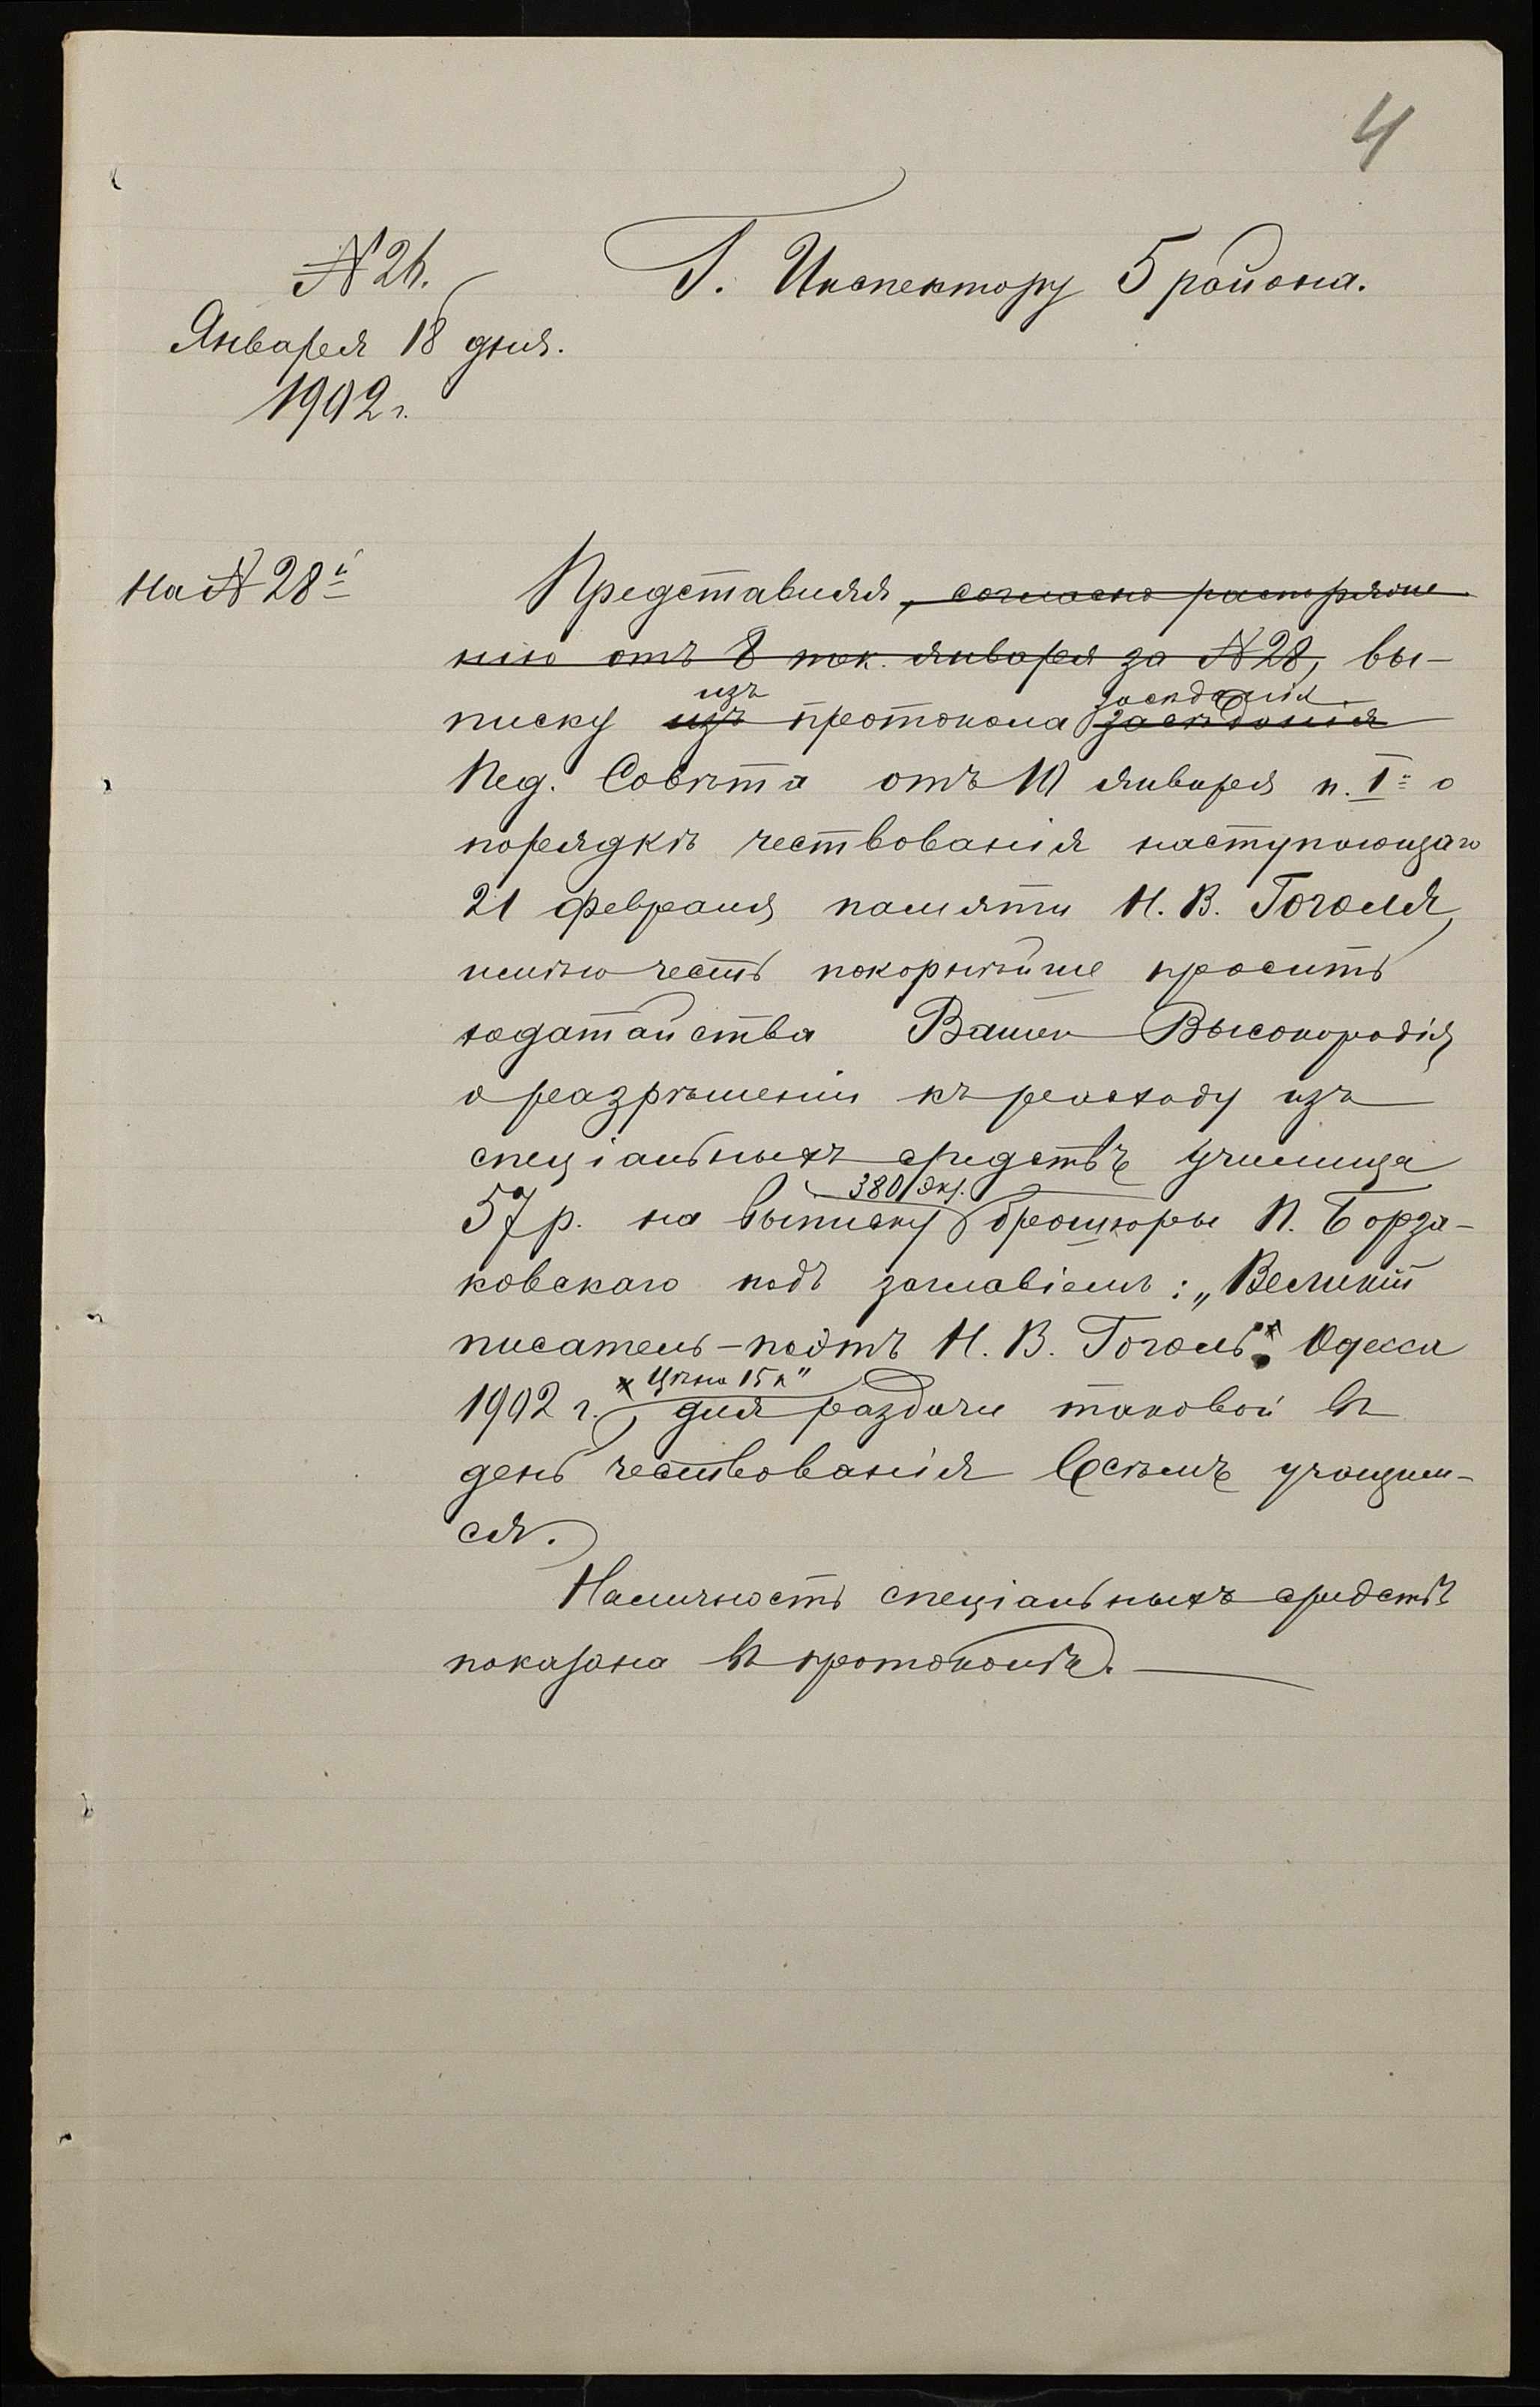 4
№ 26.
Г. Инспектору 5 района.
Января 18 дня.
1902 г.
На № 28й
Представляя, согласно распоряже-
нію отъ 8 тек. января за № 28, вы-
изъ засѣданія
писку изъ протокола засѣданія
Пед. Совѣта отъ 10 января п. I о
порядкѣ чествованія наступающаго
21 февраля памяти Н. В. Гоголя,
имѣю честь покорнѣйше просить
ходатайства Вашего Высокородія
о разрѣшеніи къ расходу изъ
спеціальныхъ средствъ училища
380 экз.
57 р. на выписку брошюры П. Борза-
ковскаго подъ заглавіемъ: „Великій
писатель-поэтъ Н. В. Гоголь". Одесса
х Цѣна 15 к"
1902 г., для раздачи таковой въ
день чествованія всѣмъ учащим-
ся.
Наличность спеціальныхъ средствъ
показана въ протоколѣ.